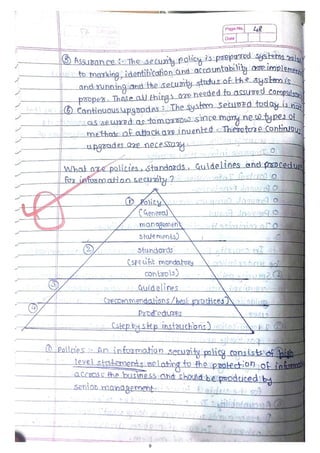 Page No. 48
Date
⑤ Assurance :- The security policy is prepared systems
to marking, identification and accountability are implemen
and running and the security status of the system is
proper. These all things are needed to assured computer
⑥ Continuous upgrades : The system secured today is not
as secured as tomorrow since many new types of
method of attack are invented. Therefore Continuous
upgrades are necessary.
What are policies, standards, Guidelines and procedu
for information security?
① Policy
(General
management
statements)
② Standards
(specific mandatory
controls)
③ Guidelines
(recommendations / best practices)
④ Procedures
(step by step instructions)
① Policies :- An information security policy consists of high
level statements relating to the protection of informa
across the business and should be produced by
senior management.